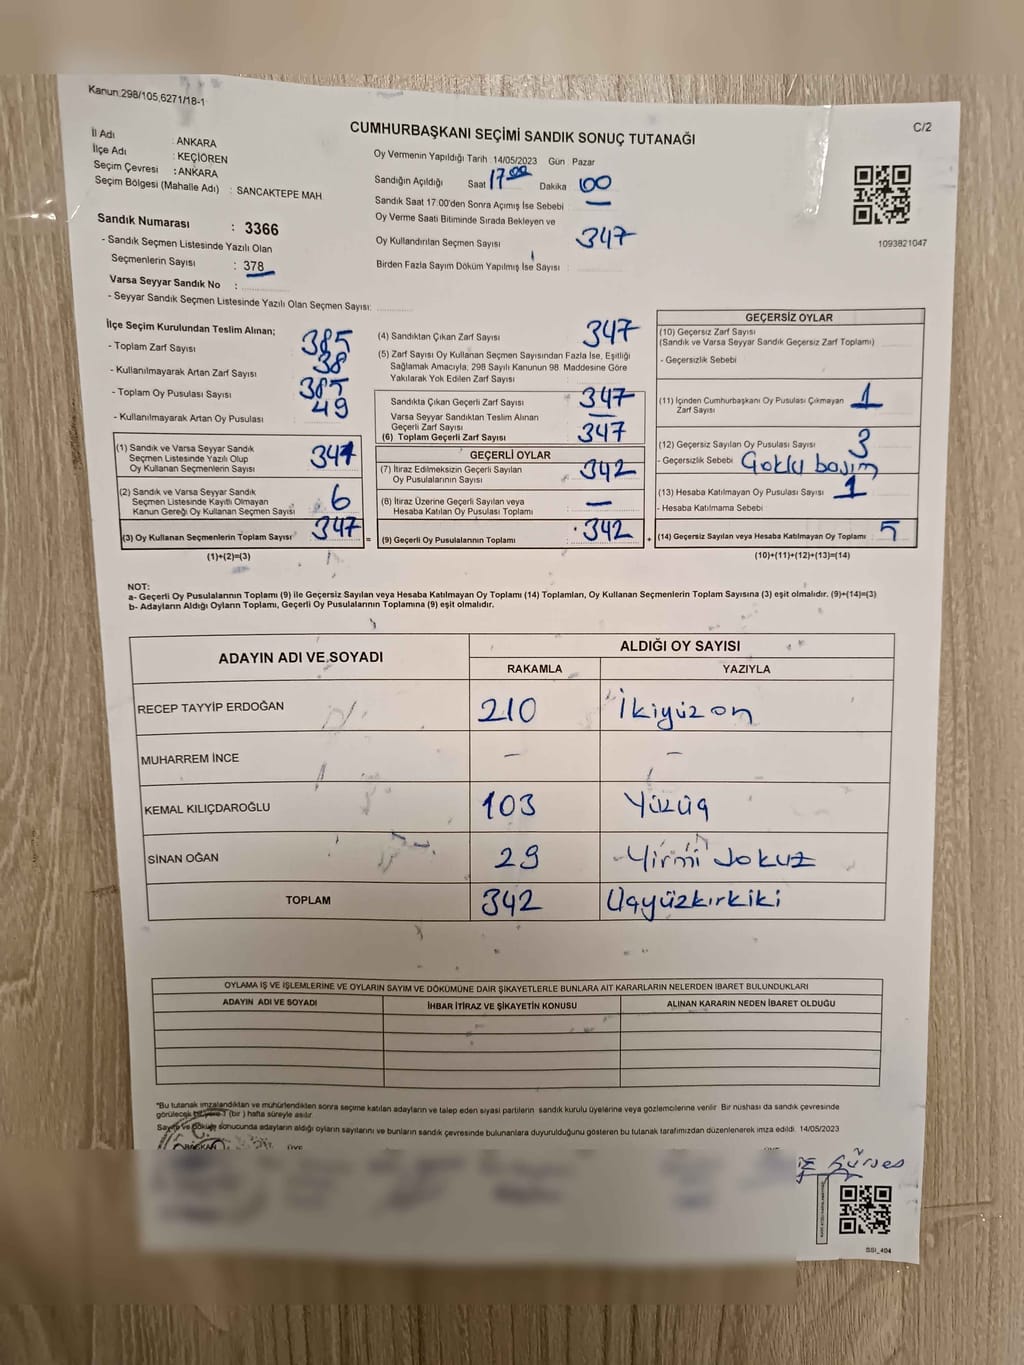 Kanun:298/105,6271/18-1
C/2
CUMHURBAŞKANI SEÇİMİ SANDIK SONUÇ TUTANAĞI
İl Adı : ANKARA
İlçe Adı : KEÇİÖREN
Seçim Çevresi : ANKARA
Seçim Bölgesi (Mahalle Adı) : SANCAKTEPE MAH
Oy Vermenin Yapıldığı Tarih : 14/05/2023 Gün : Pazar
Sandığın Açıldığı Saat 17.00 Dakika 00
Sandık Saat 17.00'den Sonra Açımış İse Sebebi —
Oy Verme Saati Bitiminde Sırada Bekleyen ve
Oy Kullandırılan Seçmen Sayısı 347
Birden Fazla Sayım Döküm Yapılmış İse Sayısı :
1093821047
Sandık Numarası : 3366
- Sandık Seçmen Listesinde Yazılı Olan
Seçmenlerin Sayısı : 378
Varsa Seyyar Sandık No :
- Seyyar Sandık Seçmen Listesinde Yazılı Olan Seçmen Sayısı:
İlçe Seçim Kurulundan Teslim Alınan;
- Toplam Zarf Sayısı : 385
- Kullanılmayarak Artan Zarf Sayısı : 38
- Toplam Oy Pusulası Sayısı : 385
- Kullanılmayarak Artan Oy Pusulası : 49
(1) Sandık ve Varsa Seyyar Sandık
Seçmen Listesinde Yazılı Olup
Oy Kullanan Seçmenlerin Sayısı : 341
(2) Sandık ve Varsa Seyyar Sandık
Seçmen Listesinde Kayıtlı Olmayan
Kanun Gereği Oy Kullanan Seçmen Sayısı : 6
(3) Oy Kullanan Seçmenlerin Toplam Sayısı : 347
(1)+(2)=(3)
(4) Sandıktan Çıkan Zarf Sayısı : 347
(5) Zarf Sayısı Oy Kullanan Seçmen Sayısından Fazla İse, Eşitliği
Sağlamak Amacıyla; 298 Sayılı Kanunun 98. Maddesine Göre
Yakılarak Yok Edilen Zarf Sayısı :
Sandıkta Çıkan Geçerli Zarf Sayısı : 347
Varsa Seyyar Sandıktan Teslim Alınan
Geçerli Zarf Sayısı : —
(6) Toplam Geçerli Zarf Sayısı : 347
GEÇERLİ OYLAR
(7) İtiraz Edilmeksizin Geçerli Sayılan
Oy Pusulalarının Sayısı : 342
(8) İtiraz Üzerine Geçerli Sayılan veya
Hesaba Katılan Oy Pusulası Toplamı : —
= (9) Geçerli Oy Pusulalarının Toplamı : 342
GEÇERSİZ OYLAR
(10) Geçersiz Zarf Sayısı
(Sandık ve Varsa Seyyar Sandık Geçersiz Zarf Toplamı)
- Geçersizlik Sebebi
(11) İçinden Cumhurbaşkanı Oy Pusulası Çıkmayan
Zarf Sayısı 1
(12) Geçersiz Sayılan Oy Pusulası Sayısı : 3
- Geçersizlik Sebebi Çoklu basım
(13) Hesaba Katılmayan Oy Pusulası Sayısı : 1
- Hesaba Katılmama Sebebi
+ (14) Geçersiz Sayılan veya Hesaba Katılmayan Oy Toplamı : 5
(10)+(11)+(12)+(13)=(14)
NOT:
a- Geçerli Oy Pusulalarının Toplamı (9) ile Geçersiz Sayılan veya Hesaba Katılmayan Oy Toplamı (14) Toplamları, Oy Kullanan Seçmenlerin Toplam Sayısına (3) eşit olmalıdır. (9)+(14)=(3)
b- Adayların Aldığı Oyların Toplamı, Geçerli Oy Pusulalarının Toplamına (9) eşit olmalıdır.
ADAYIN ADI VE SOYADI ALDIĞI OY SAYISI
RAKAMLA YAZIYLA
RECEP TAYYİP ERDOĞAN 210 İkiyüzon
MUHARREM İNCE – –
KEMAL KILIÇDAROĞLU 103 Yüzüç
SİNAN OĞAN 29 Yirmi dokuz
TOPLAM 342 Üçyüzkırkiki
OYLAMA İŞ VE İŞLEMLERİNE VE OYLARIN SAYIM VE DÖKÜMÜNE DAİR ŞİKAYETLERLE BUNLARA AİT KARARLARIN NELERDEN İBARET BULUNDUKLARI
ADAYIN ADI VE SOYADI İHBAR İTİRAZ VE ŞİKAYETİN KONUSU ALINAN KARARIN NEDEN İBARET OLDUĞU
*Bu tutanak imzalandıktan ve mühürlendikten sonra seçime katılan adayların ve talep eden siyasi partilerin sandık kurulu üyelerine veya gözlemcilerine verilir. Bir nüshası da sandık çevresinde
görülecek bir yere 1 (bir) hafta süreyle asılır.
Sayım ve döküm sonucunda adayların aldığı oyların sayıtını ve bunların sandık çevresinde bulunanlara duyurulduğunu gösteren bu tutanak tarafımızdan düzenlenerek imza edildi. 14/05/2023
BAŞKAN ÜYE
Gürses
SSI_404